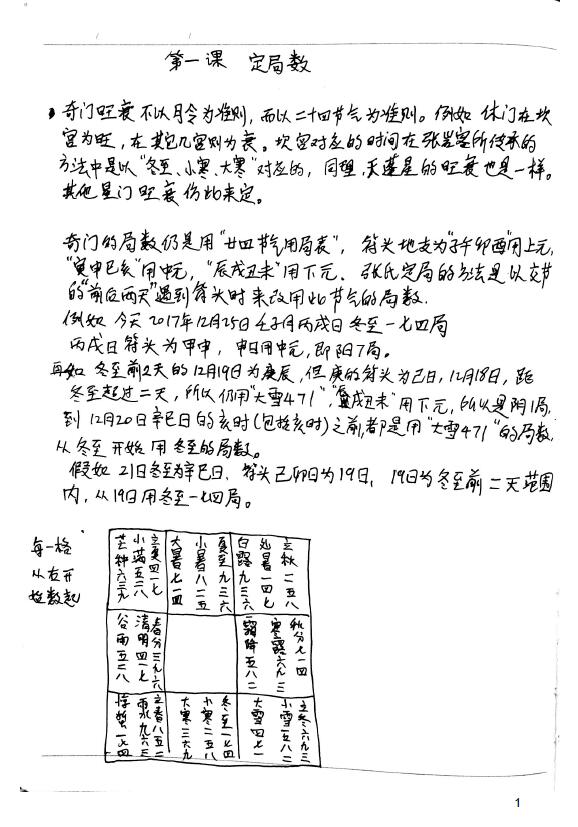 第一课 定局数
奇门旺衰不以月令为准则，而以二十四节气为准则。例如休门在坎
宫为旺，在其它几宫则为衰。坎宫对应的时间在张岩写所传承的
方法中是以"冬至、小寒、大寒"对应的，同理，天蓬星的旺衰也是一样。
其他星门旺衰仿此来定。
奇门的局数仍是用"廿四节气用局表"，符头地支为"子午卯酉"用上元，
"寅申巳亥"用中元，"辰戌丑未"用下元。张氏定局的方法是以交节
的"前后两天"遇到符头时来改用此节气的局数。
例如今天2017年12月25日壬子月丙戌日冬至一七四局
丙戌日符头为甲申，申日用中元，即阳7局。
再如冬至前2天的12月19日为庚辰，但庚的符头为己日，12月18日，距
冬至超过二天，所以仍用"大雪471"，"辰戌丑未"用下元，所以是阴1局，
到12月20日辛巳日的亥时(包括亥时)之前，都是用"大雪471"的局数，
从冬至开始用冬至的局数。
假如21日冬至为辛巳日，符头己卯日为19日，19日为冬至前二天范围
内，从19日用冬至一七四局。
每一格
从右开
始数起
立夏四一七
小满五二八
芒种六三九
夏至九三六
小暑八二五
大暑七一四
立秋二五八
处暑一四七
白露九三六
春分三九六
清明四一七
谷雨五二八
秋分七一四
寒露六九三
霜降五八二
立春八五二
雨水九六三
惊蛰一七四
冬至一七四
小寒二八五
大寒三六九
立冬六九三
小雪五八二
大雪四七一
1